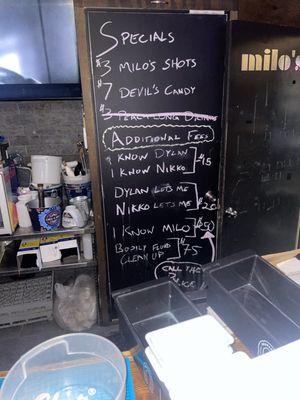 SPECIALS
$3 MILO'S SHOTS
$7 DEVIL'S CANDY
$3 PEACH LONG DRINKS
ADDITIONAL FEES
I KNOW DYLAN
I KNOW NIKKO
$15
DYLAN LETS ME
NIKKO LETS ME
$20
I KNOW MILO
$50
BODILY FLUID
CLEAN UP
$75
CALL THE
milo's